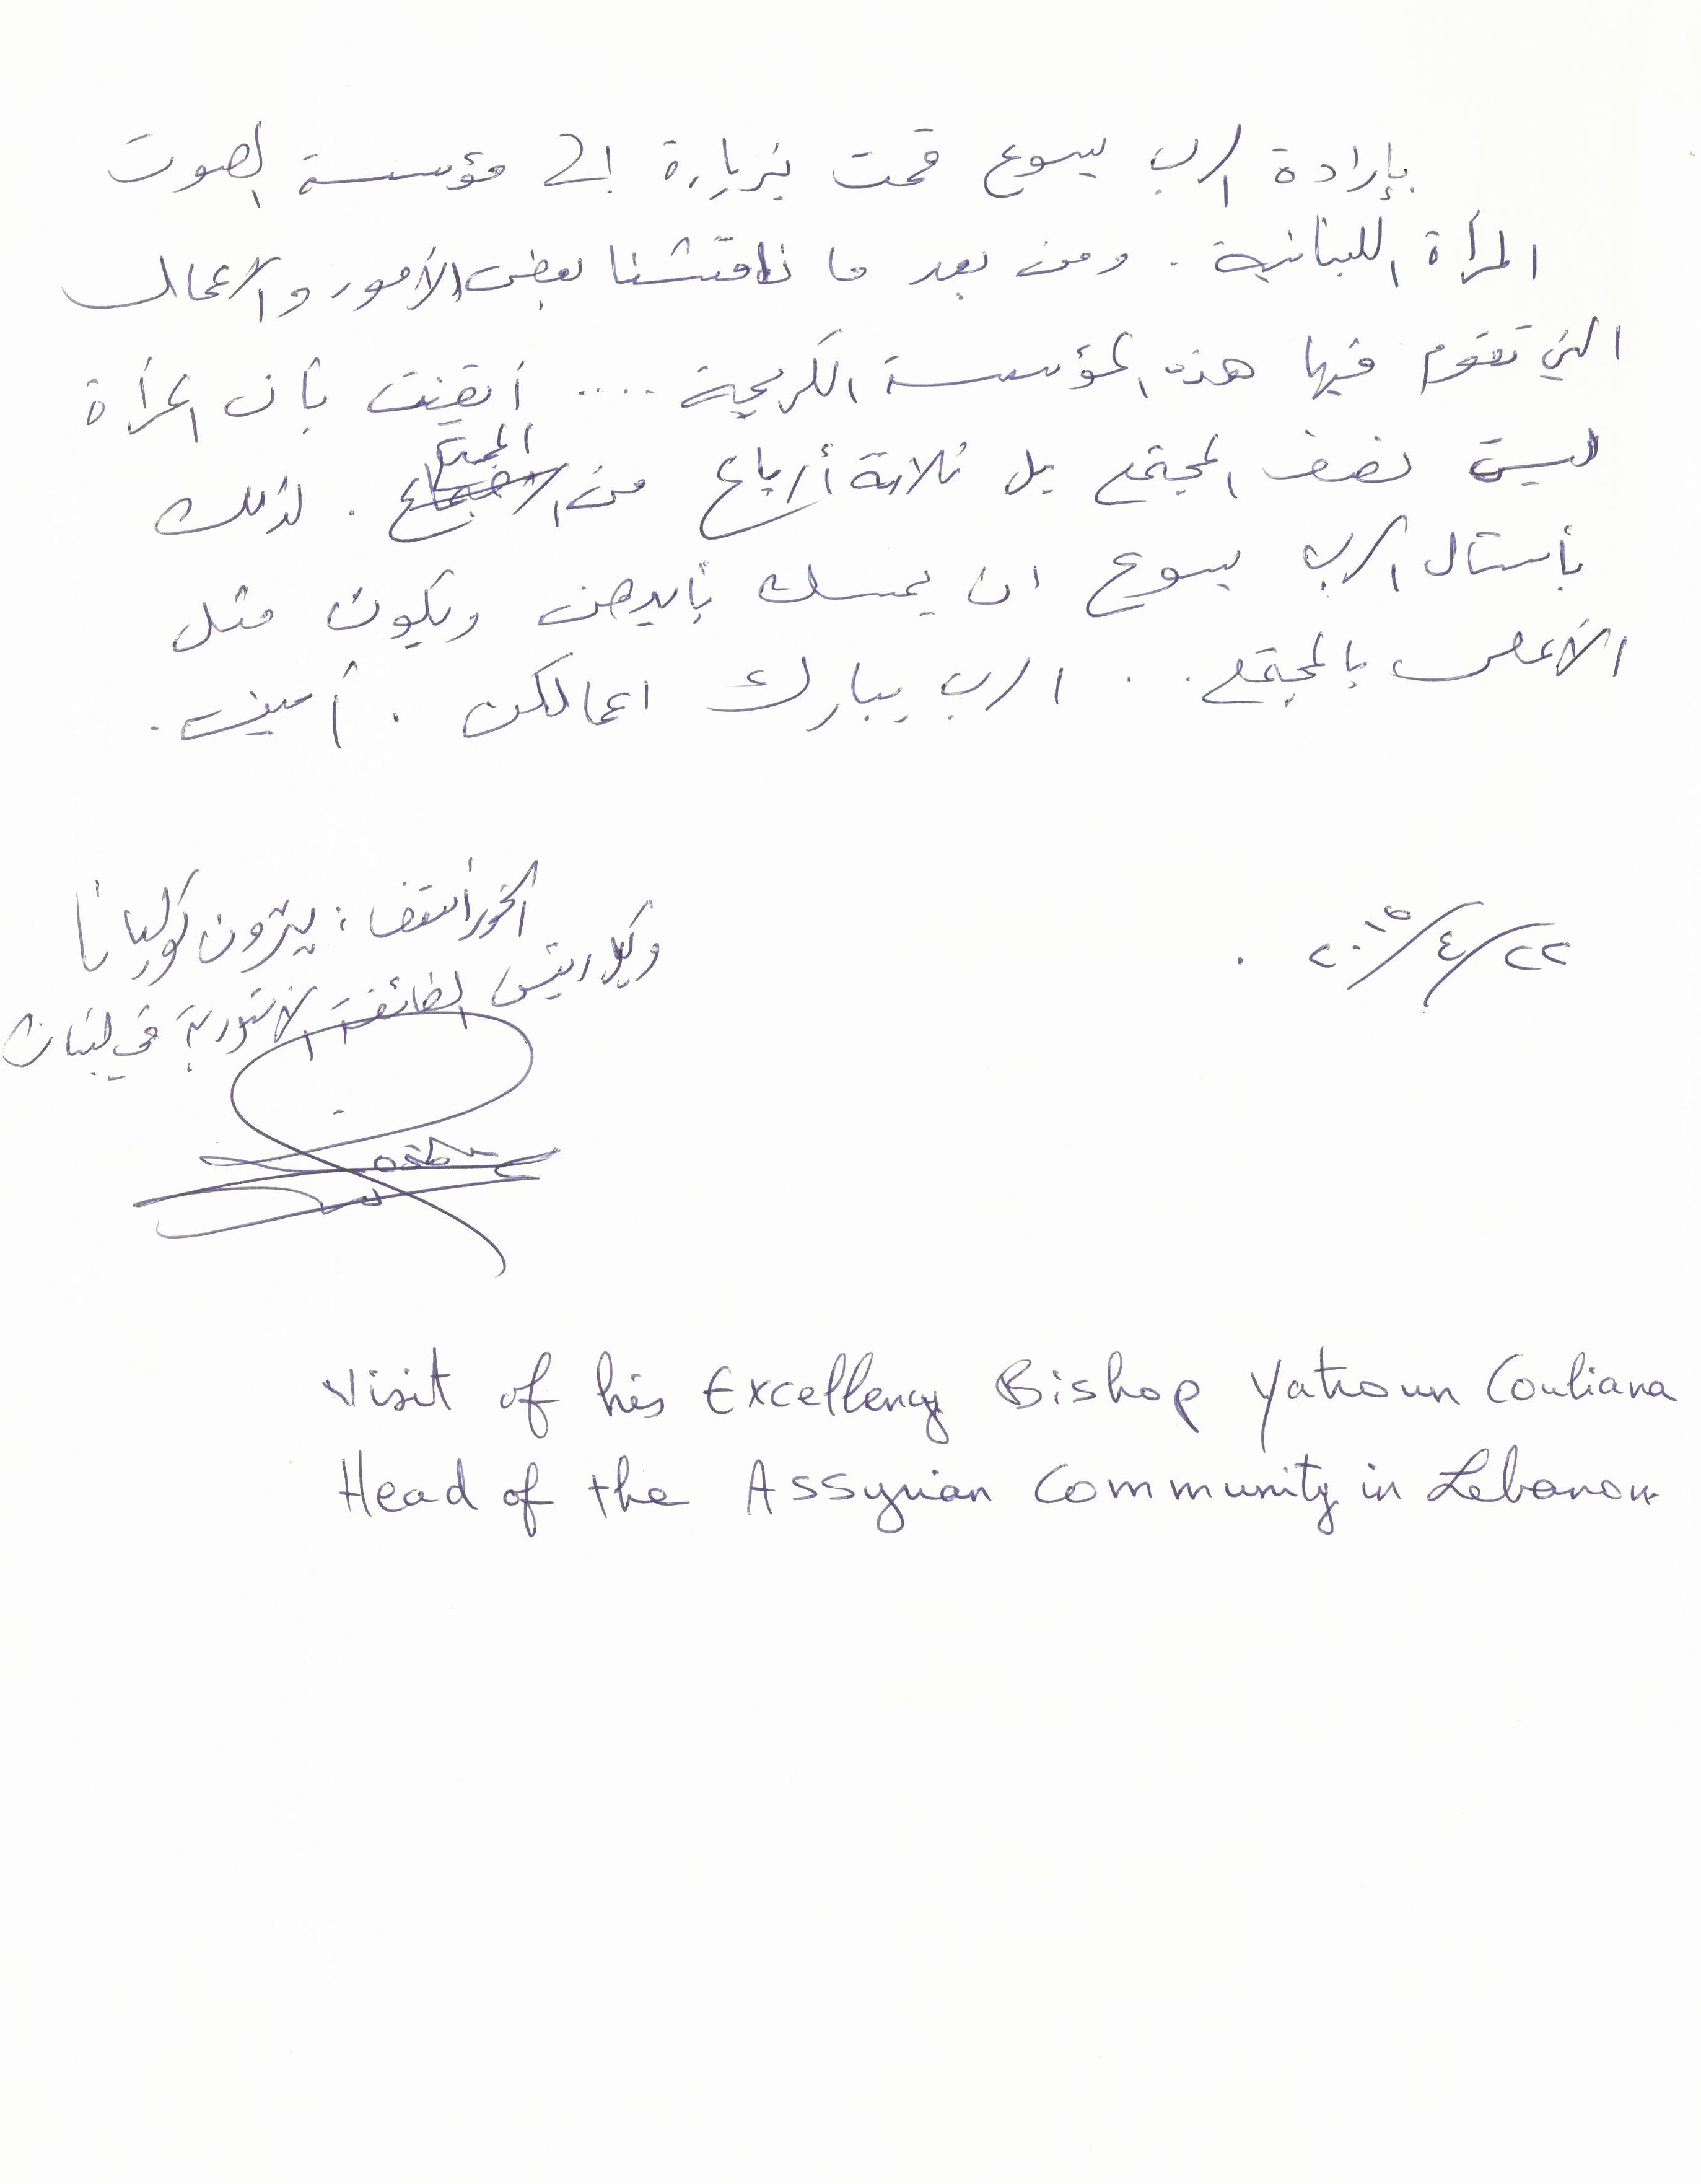 بإرادة الرب يسوع قمت بزيارة إلى مؤسسة الصوت
المرأة اللبنانية . ومن بعد ما ناقشنا بعض الأمور والاعمال
التي تقوم فيها هذه المؤسسة الكريمة .... أيقنت بأن المرأة
ليست نصف المجتمع بل ثلاثة أرباع من المجتمع . لذلك
بأسئل الرب يسوع ان يمسك بأيدهن ويكون مثل
بالمجتمع .. الرب يبارك اعمالكن . أمين .
الخورأسقف : يترون كوليانا
٢٢/٤/٢٠١٥ .
وكيل رئيس الطائفة الاشورية في لبنان
Visit of his Excellency Bishop Yatroun Couliana
Head of the Assyrian Community in Lebanon